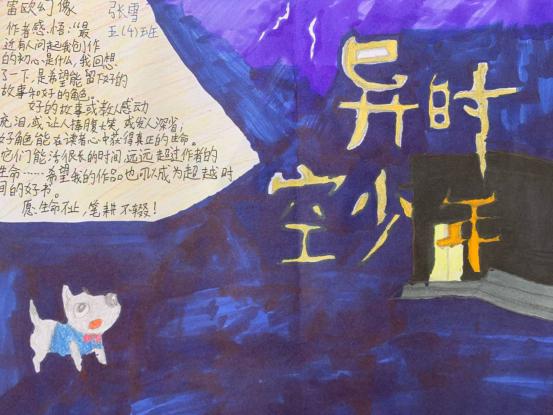 雷欧幻像 张雪
作者感悟:“最 五(4)班
近有人问起我创作
的初心是什么,我回想
了一下,是希望能留下好的
故事和好的角色。
好的故事或教人感动
充泪,或让人捧腹大笑,或发人深省,
好角色能在读者心中获得真正的生命。
它们能活很长的时间,远远超过作者的
生命……希望我的作品也可以成为超越时
间的好书。
愿生命不止,笔耕不辍!
异时
空少年